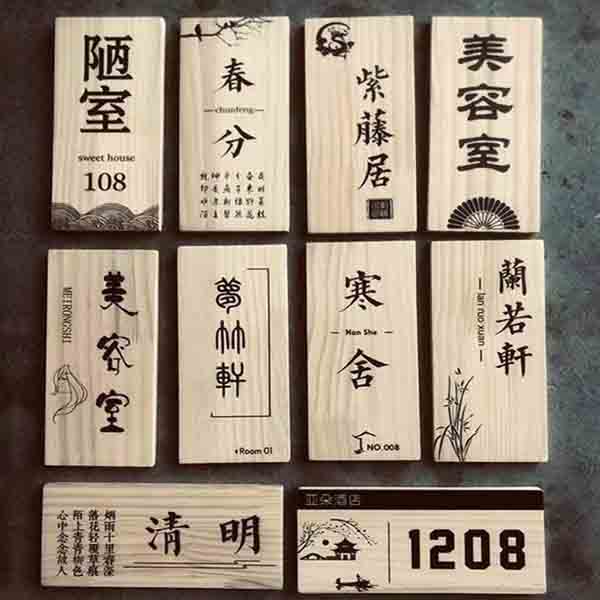 陋室
sweet house
108
春分
chunfeng
紫藤居
美容室
美容室
MEIRONGSHI
夢竹軒
Room 01
寒舍
Han She
NO.008
蘭若軒
lan ruo xuan
清明
烟雨十里春深
落花轻覆草痕
陌上青青柳色
心中念念故人
亚朵酒店
1208